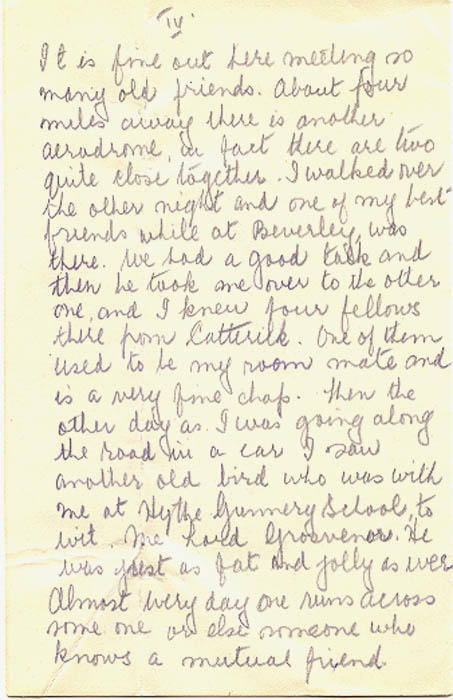 IV.
It is fine out here meeting so
many old friends. About four
miles away there is another
aerodrome, in fact there are two
quite close together. I walked over
the other night and one of my best
friends while at Beverley, was
there. We had a good talk and
then he took me over to the other
one, and I knew four fellows
there from Catterick. One of them
used to be my room mate and
is a very fine chap. Then the
other day as I was going along
the road in a car I saw
another old bird who was with
me at Hythe Gunnery School, to
wit, Lord Grosvenor. He
was just as fat and jolly as ever
Almost every day one runs across
some one or else someone who
knows a mutual friend.